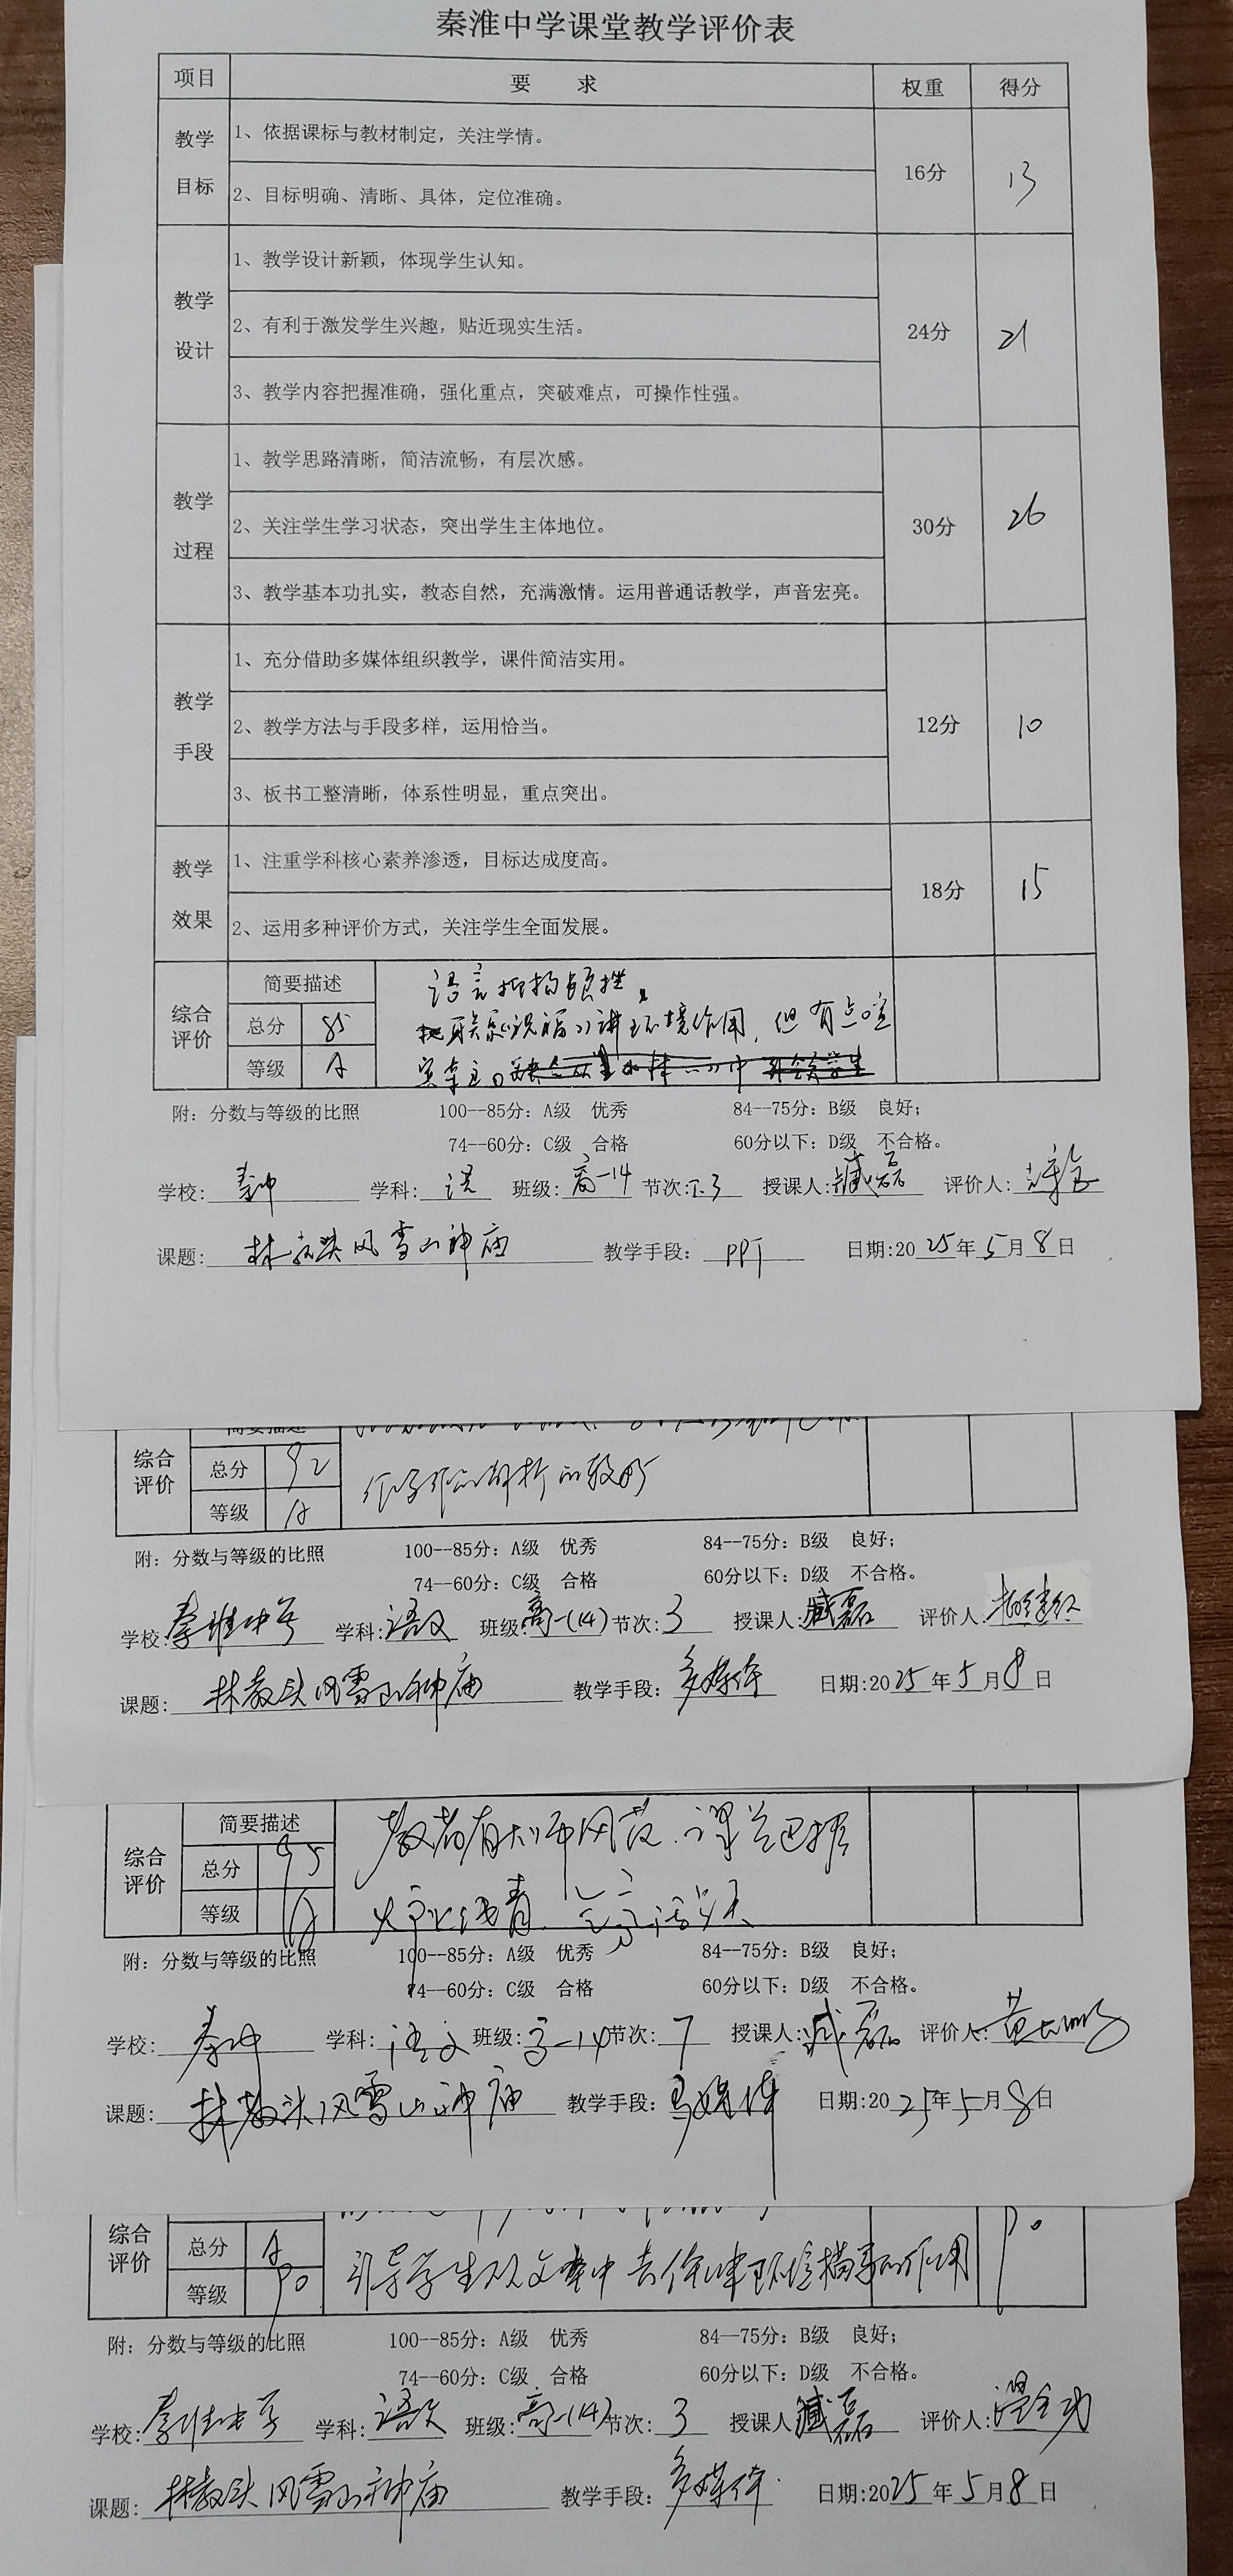 秦淮中学课堂教学评价表
项目 要 求 权重 得分
教学目标 1、依据课标与教材制定，关注学情。 16分 13
2、目标明确、清晰、具体，定位准确。
教学设计 1、教学设计新颖，体现学生认知。 24分 21
2、有利于激发学生兴趣，贴近现实生活。
3、教学内容把握准确，强化重点，突破难点，可操作性强。
教学过程 1、教学思路清晰，简洁流畅，有层次感。 30分 26
2、关注学生学习状态，突出学生主体地位。
3、教学基本功扎实，教态自然，充满激情。运用普通话教学，声音宏亮。
教学手段 1、充分借助多媒体组织教学，课件简洁实用。 12分 10
2、教学方法与手段多样，运用恰当。
3、板书工整清晰，体系性明显，重点突出。
教学效果 1、注重学科核心素养渗透，目标达成度高。 18分 15
2、运用多种评价方式，关注学生全面发展。
综合评价 简要描述 语言抑扬顿挫，
总分 85 联系《祝福》讲环境作用，但有点喧
等级 A 宾夺主。
附：分数与等级的比照 100--85分：A级 优秀 84--75分：B级 良好；
74--60分：C级 合格 60分以下：D级 不合格。
学校：秦中 学科：语 班级：高一14 节次：下3 授课人：臧磊 评价人：
课题：林教头风雪山神庙 教学手段：PPT 日期:2025年5月8日
综合评价 简要描述
总分 92
等级 A
附：分数与等级的比照 100--85分：A级 优秀 84--75分：B级 良好；
74--60分：C级 合格 60分以下：D级 不合格。
学校：秦淮中学 学科：语文 班级：高一(14) 节次：3 授课人：臧磊 评价人：
课题：林教头风雪山神庙 教学手段：多媒体 日期:2025年5月8日
综合评价 简要描述 教者有大师风范，课堂
总分 95
等级 A
附：分数与等级的比照 100--85分：A级 优秀 84--75分：B级 良好；
74--60分：C级 合格 60分以下：D级 不合格。
学校：秦中 学科：语文 班级：高一14 节次：7 授课人：臧磊 评价人：黄
课题：林教头风雪山神庙 教学手段：多媒体 日期:2025年5月8日
综合评价 总分 A 引导学生从文本中去体味环境描写的作用 90
等级 90
附：分数与等级的比照 100--85分：A级 优秀 84--75分：B级 良好；
74--60分：C级 合格 60分以下：D级 不合格。
学校：秦淮中学 学科：语文 班级：高一(14) 节次：3 授课人：臧磊 评价人：
课题：林教头风雪山神庙 教学手段：多媒体 日期:2025年5月8日